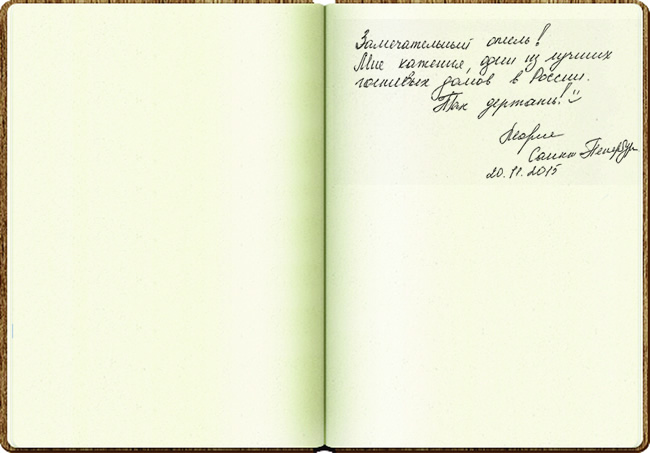 Замечательный отель!
Мне кажется, один из лучших
гостевых домов в России.
Так держать!
Санкт-Петербург
20.11.2015